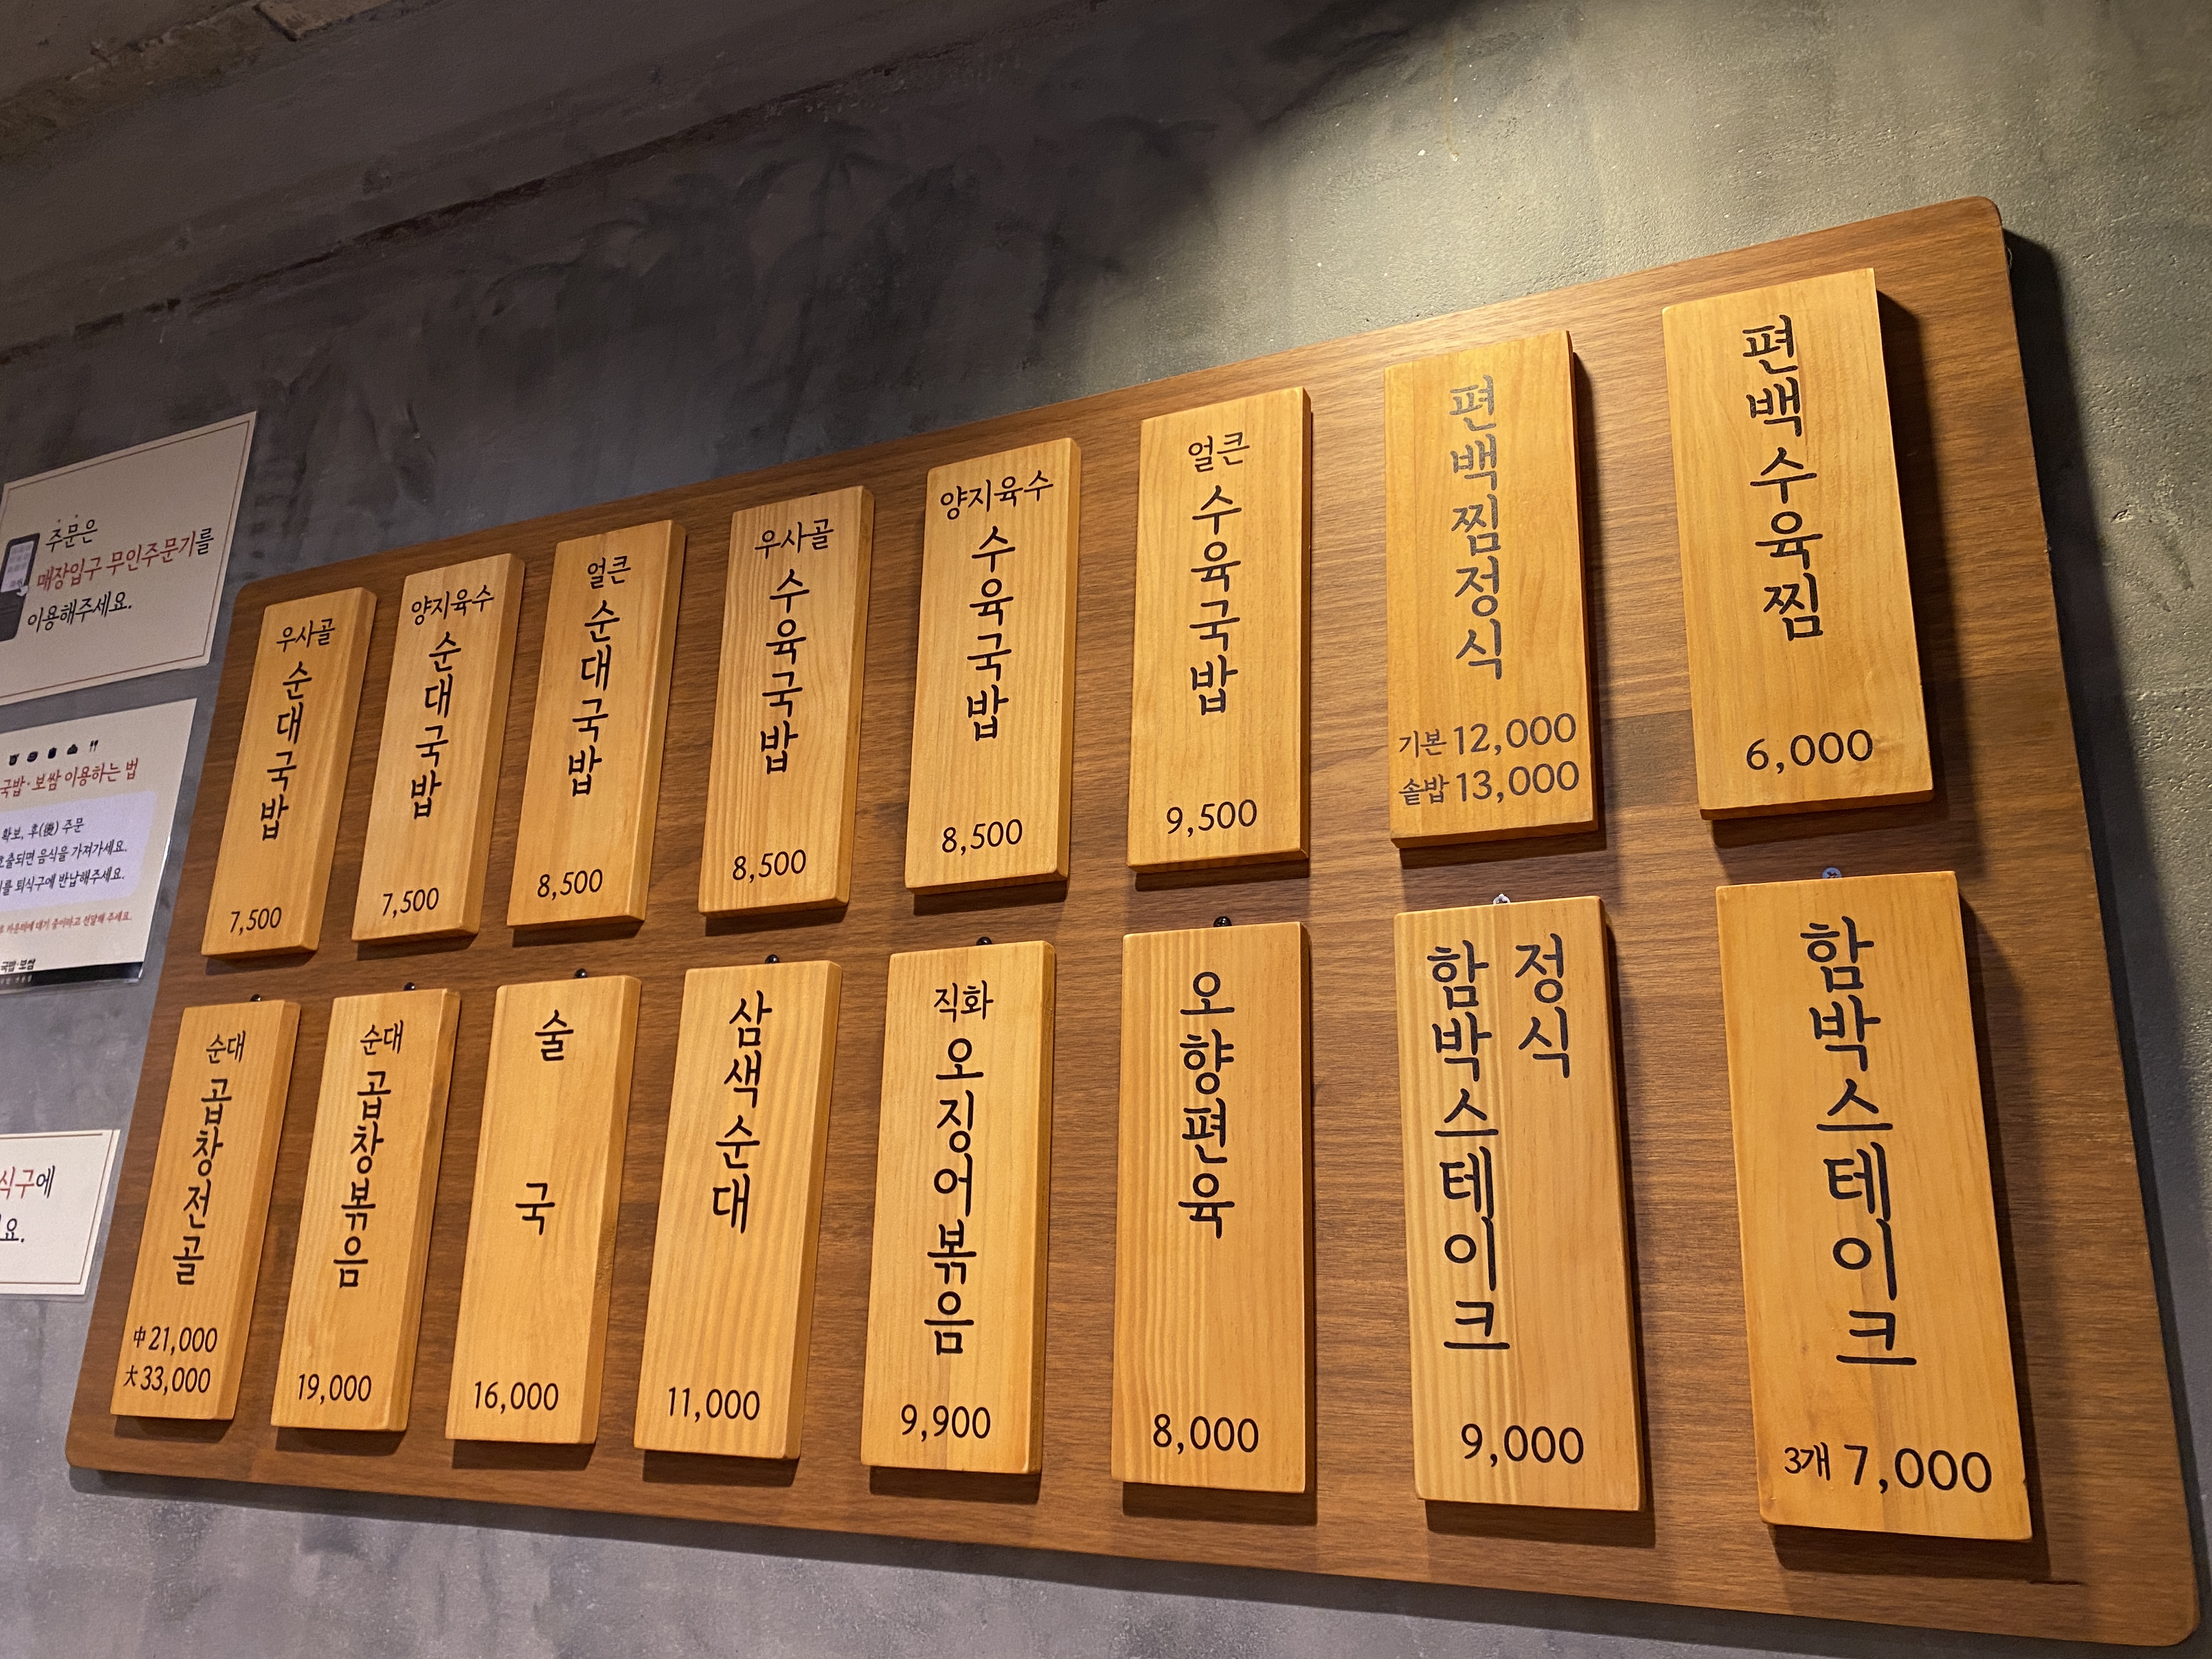 주문은
매장입구 무인주문기를
이용해주세요.
국밥·보쌈 이용하는 법
확보, 후(後) 주문
호출되면 음식을 가져가세요.
를 퇴식구에 반납해주세요.
국밥·보쌈
식구에
요.
우사골
순대국밥
7,500
양지육수
순대국밥
7,500
얼큰
순대국밥
8,500
우사골
수육국밥
8,500
양지육수
수육국밥
8,500
얼큰
수육국밥
9,500
편백찜정식
기본 12,000
솥밥 13,000
편백수육찜
6,000
순대
곱창전골
中 21,000
大 33,000
순대
곱창볶음
19,000
술국
16,000
삼색순대
11,000
직화
오징어볶음
9,900
오향편육
8,000
함박스테이크
정식
9,000
함박스테이크
3개 7,000